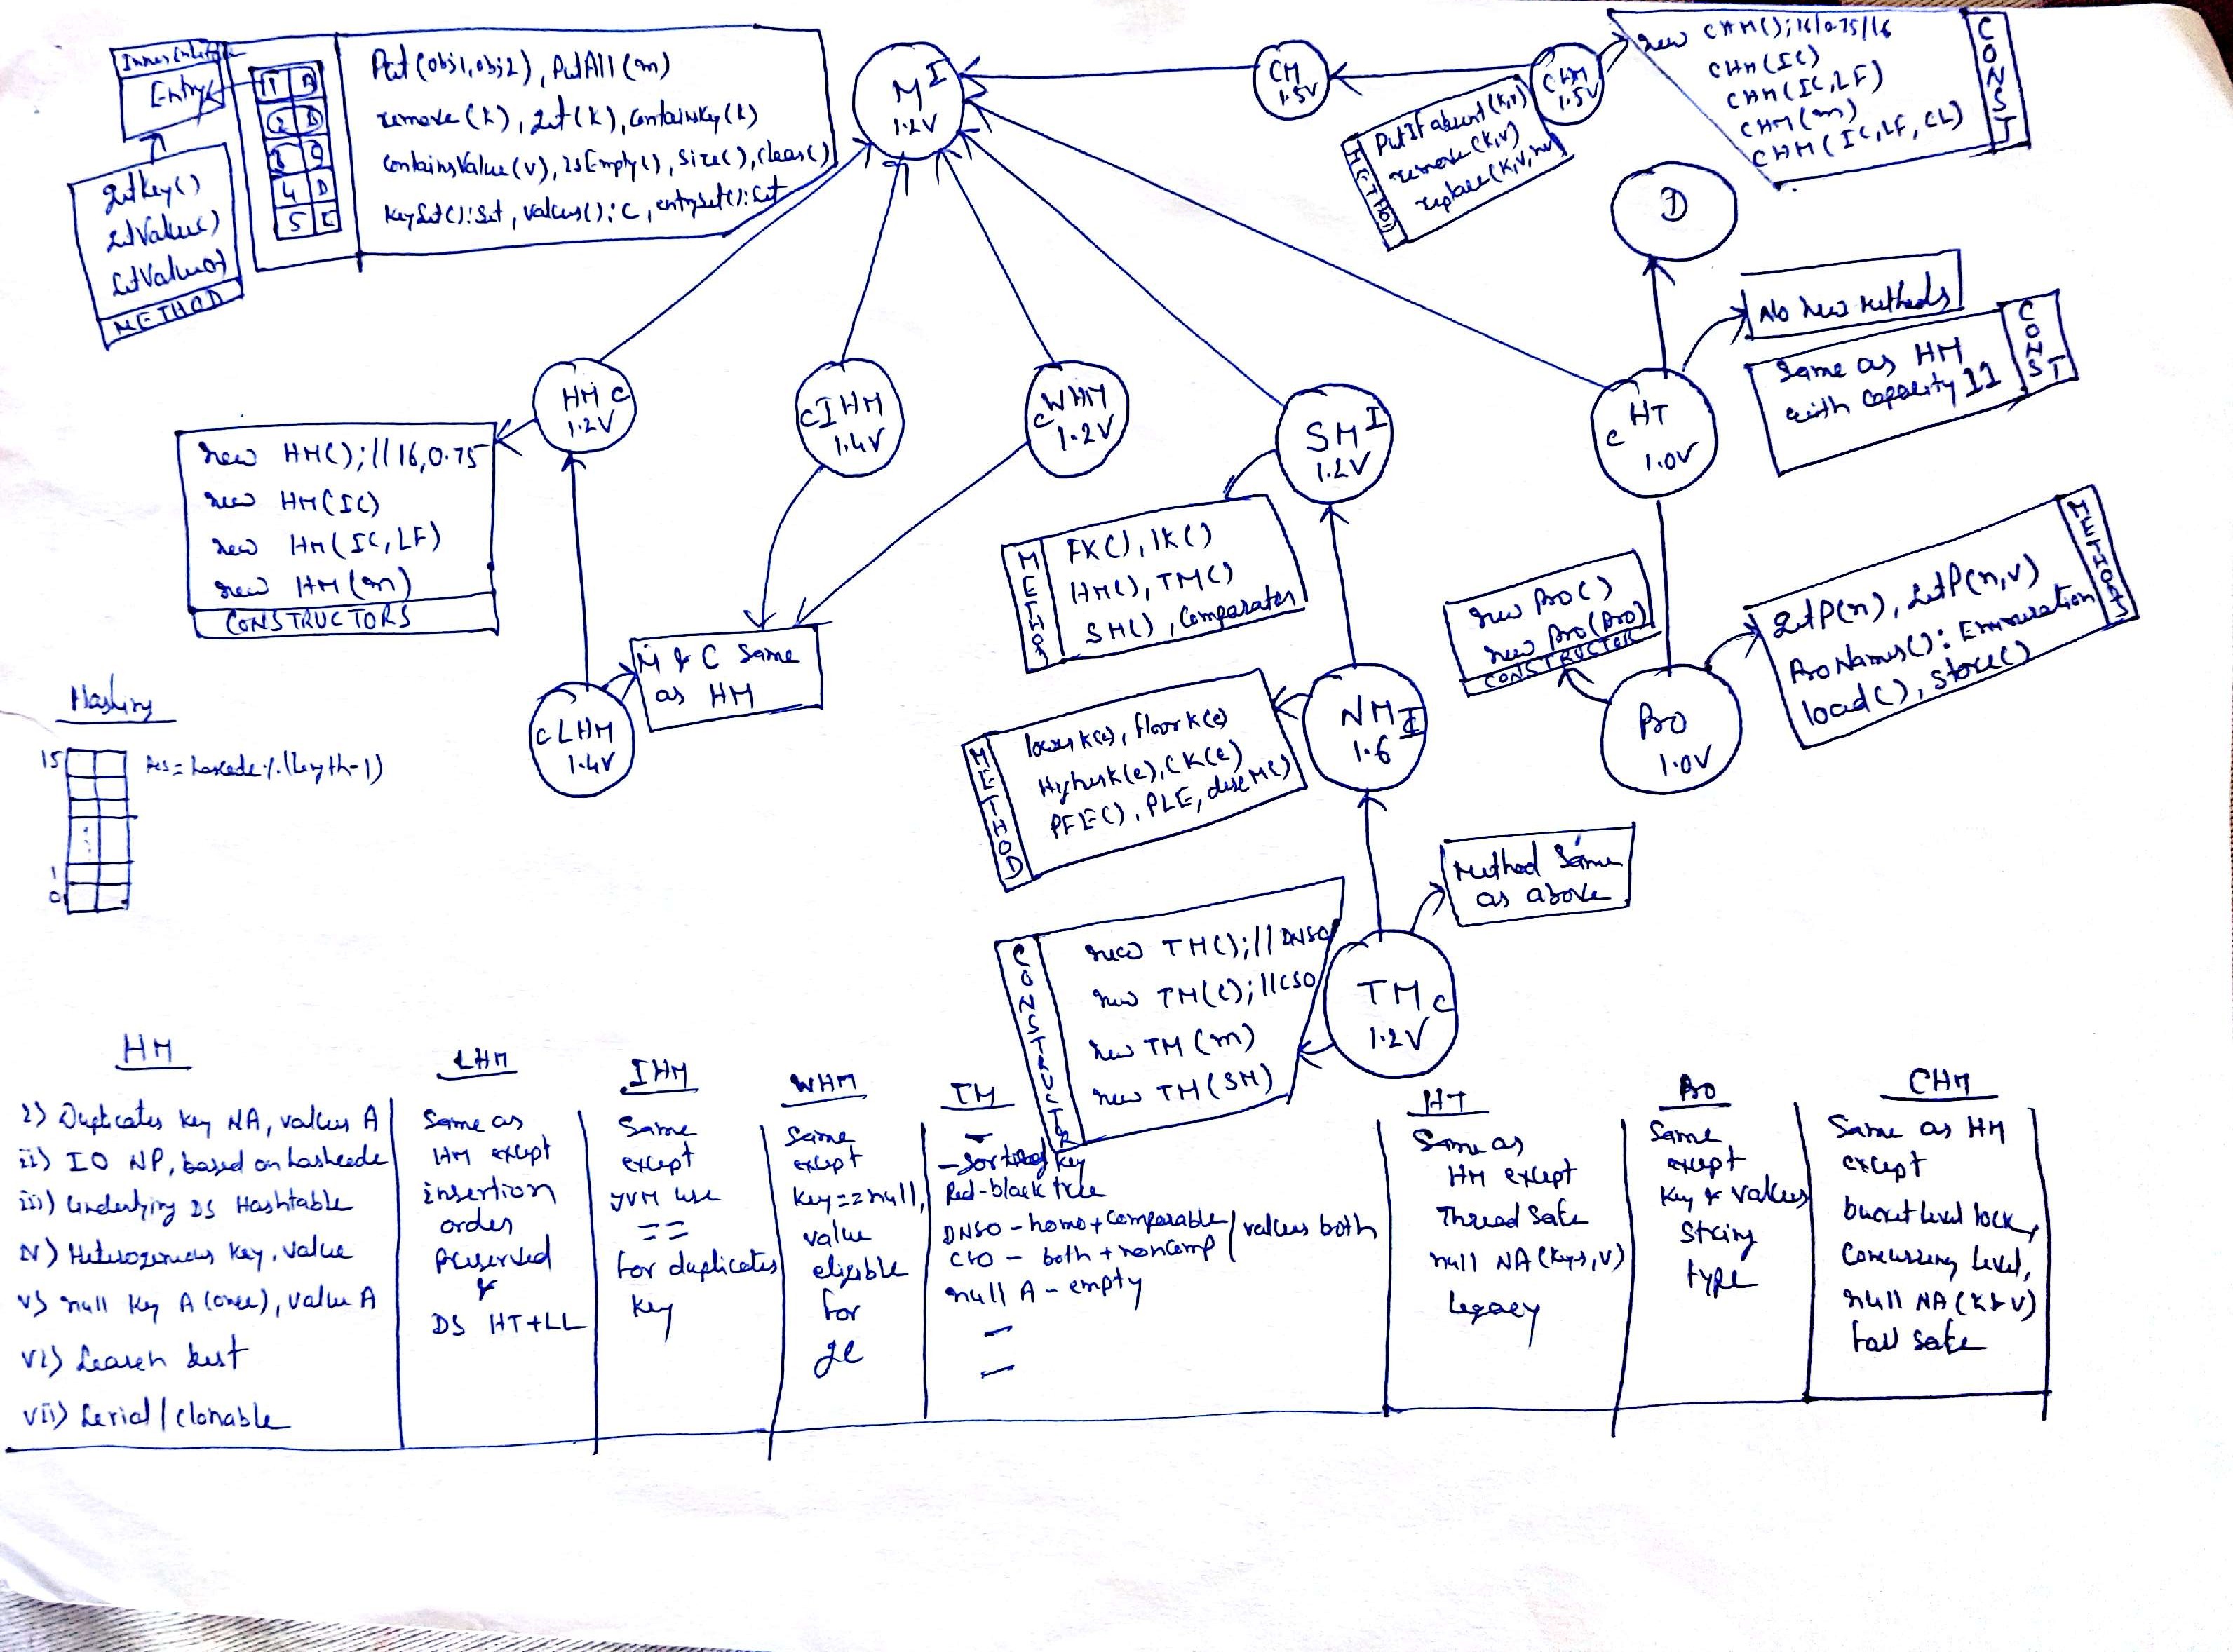 Entry
getKey()
getValue()
METHOD
1 A
2 D
3 C
4 D
5 C
Put(obj1,obj2), PutAll(m)
remove(k), get(k), containsKey(k)
containsValue(v), isEmpty(), size(), clear()
KeySet():Set, values():C, entrySet():Set
M I
1.2V
CM
1.5V
CHM
1.5V
METHOD
PutIfabsent(K,V)
remove(K,V)
replace(K,V,nv)
new CHM();16/0.75/16
CHM(IC)
CHM(IC,LF)
CHM(m)
CHM(IC,LF,CL)
CONST
D
No new Methods
Same as HM
with capacity 11
CONST
HM C
1.2V
C IHM
1.4V
C WHM
1.2V
SM I
1.2V
C HT
1.0V
new HM();//16,0.75
new HM(IC)
new HM(IC,LF)
new HM(m)
CONSTRUCTORS
METHOD
FK(), lK()
HM(), TM()
SM(), Comparator
M & C Same
as HM
C LHM
1.4V
new Pro()
new Pro(Pro)
CONSTRUCTOR
getP(n), setP(n,v)
ProNames(): Enmuration
load(), store()
METHODS
Pro
1.0V
NM I
1.6
METHOD
lowerk(e), floork(e)
Higherk(e), CK(e)
PFE(), PLE, descM()
Hashing
15
1
0
= hascode%(length-1)
Method Same
as above
TM C
1.2V
CONSTRUCTOR
new TM();//DNSO
new TM(c);//CSO
new TM(m)
new TM(SM)
HM
i) Duplicates key NA, values A
ii) IO NP, based on hashcode
iii) Underlying DS Hashtable
iv) Heterogenous key, value
v) null key A (once), value A
vi) Search best
vii) Serial/clonable
LHM
Same as
HM except
insertion
order
preserved
&
DS HT+LL
IHM
Same
except
JVM use
==
for duplicates
key
WHM
Same
except
key==null,
value
eligible
for
gc
TM
-
- Sorting key
Red-black tree
DNSO - homo+comparable/values both
CSO - both+noncomp
null A - empty
-
-
HT
Same as
HM except
Thread Safe
null NA(Keys,V)
Legacy
Pro
Same
except
Key & values
String
type
CHM
Same as HM
except
bucket level lock,
level,
null NA(K&V)
fail safe